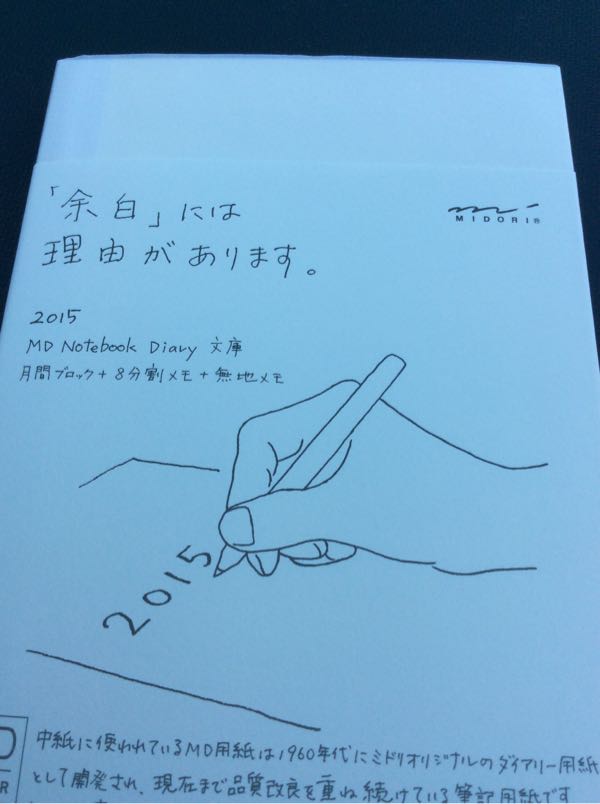 「余白」には
MIDORI®
理由があります。
2015
MD Notebook Diary 文庫
月間ブロック+8分割メモ+無地メモ
2015
中紙に使われているMD用紙は1960年代にミドリオリジナルのダイアリー用紙
として開発され、現在まで品質改良を重ね続けている筆記用紙です